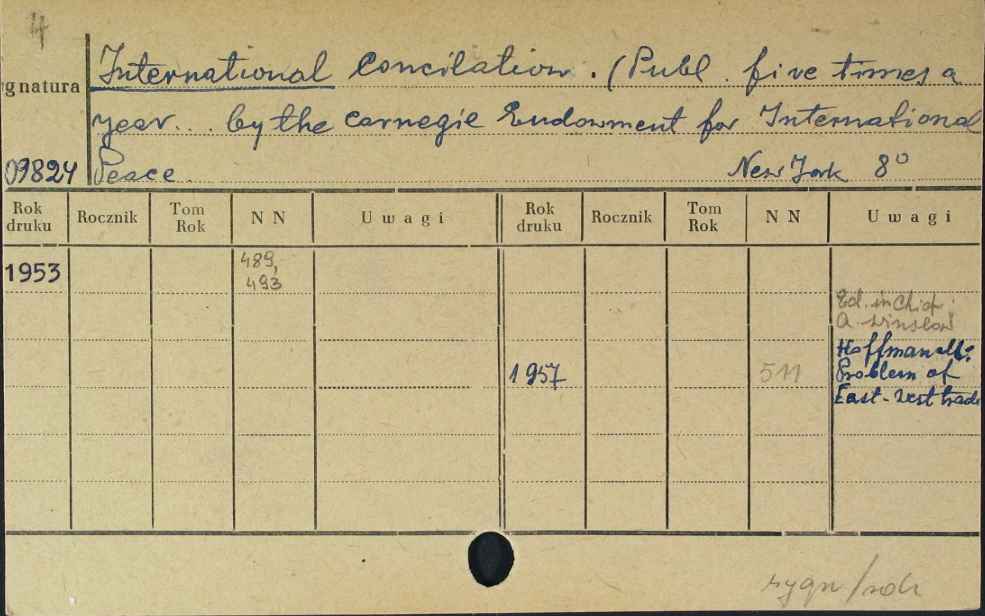 4
International Concilation. (Publ. five times a
gnatura
year... by the Carnegie Endowment for International
09824 Peace. New York 8°
Rok druku Rocznik Tom Rok NN Uwagi Rok druku Rocznik Tom Rok NN Uwagi
1953 489,
493
Ed. in Chief:
A. Winslow
Hoffman M.:
1957 511 Problem of
East-West trade